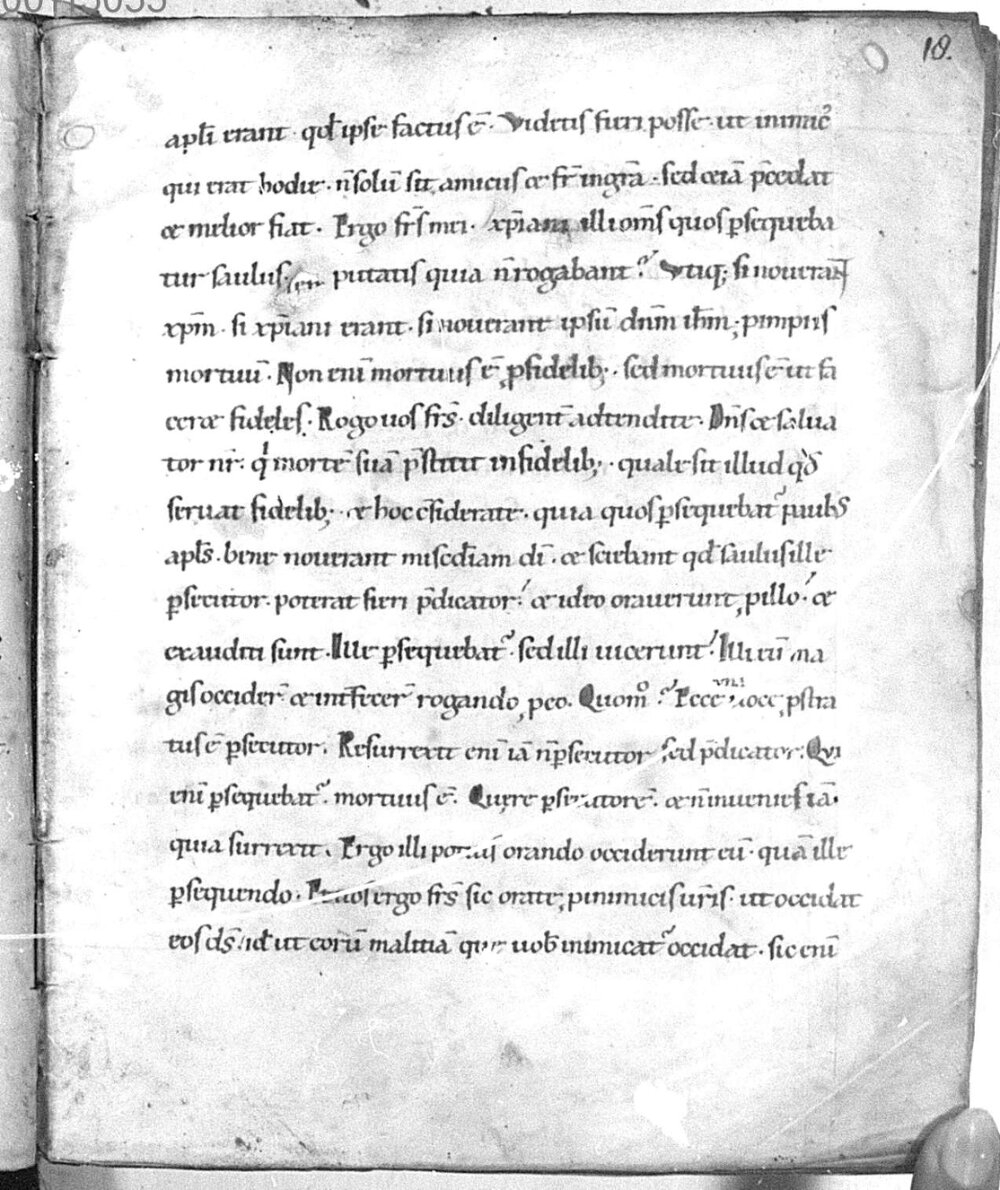 18.
apłi erant · qđ ipse factus ē· Videtis fieri posse· ut inimicꝰ
qui erat hodie· n̄ solū sit amicus & fr̄ in gr̄a· sed & iā p̄cedat
& melior fiat· Ergo fr̄s mei· xp̄iani illi om̄s quos ꝑsequeba
tur saulus· putatis quia n̄ rogabant? Utiq; si noueran̄t
xp̄m· si xp̄iani erant· si nouerant ipsū dn̄m ih̄m· ꝓ impiis
mortuū· Non eni mortuus ē ꝓ fidelib;· sed mortuus ē ut fa
cer& fideles· Rogo uos fr̄s· diligent̄ adtendite· Dn̄s & salua
tor nr̄· qͥ mortē suā p̄stitit infidelib;· quale sit illud qđ
seruat fidelib;· & hoc c̄siderate· quia quos ꝑsequebat᷑ paulus
apłs· bene nouerant mis̄cdiam dī· & sciebant qđ saulus ille
ꝑsecutor· poterat fieri p̄dicator· & ideo orauerunt ꝓ illo· &
exauditi sunt· Ille ꝑsequebat᷑· sed illi uicerunt· Illi eū ma
gis occider̄ & int̄fecer̄ rogando ꝓ eo· Quomͦ? Ecce uoce ꝓstra
tus ē ꝑsecutor· Resurrexit eni iā n̄ ꝑsecutor sed p̄dicator· Qui
eni ꝑsequebat᷑· mortuus ē· Quere ꝑsecutorē· & n̄ inuenies iā·
quia surrexit· Ergo illi orando occiderunt eū· quā ille
ꝑsequendo· ergo fr̄s sic orate ꝓ inimicis ur̄is· ut occidat
eos ds̄· id ut eorū malitiā que uob inimicat᷑ occidat· sic eni